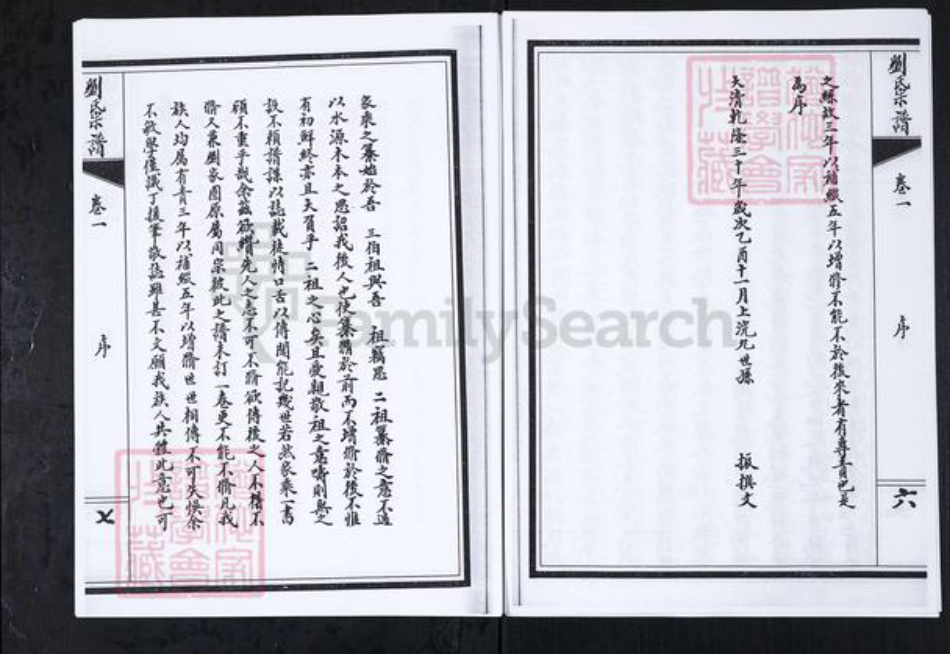 劉氏宗譜
卷一
序
六
之緣故三年以補綴五年以增修不能不於後來者有專責也是
為序
大清乾隆三十年歲次乙酉十一月上浣九世孫
振撰文
家乘之纂始於吾 三伯祖與吾 祖竊思 二祖纂修之意不過
以水源木本之思詔我後人也使纂修於前而不增修於後不惟
有初鮮終亦且大負乎 二祖之心矣且愛親敬祖之意疇則無之
設不賴譜諜以誌載徒恃口舌以傳聞能記幾世若然家乘一書
顧不重乎哉余茲欲纘先人之志不可不修欲傳後之人不楮不
修又兼劉家園原屬同宗彼此之譜未訂一卷更不能不修凡我
族人均屬有責三年以補綴五年以增修世世相傳不可失悞余
不敏學僅識丁援筆敬誌雖甚不文願我族人共體此意也可
劉氏宗譜
卷一
序
七
FamilySearch